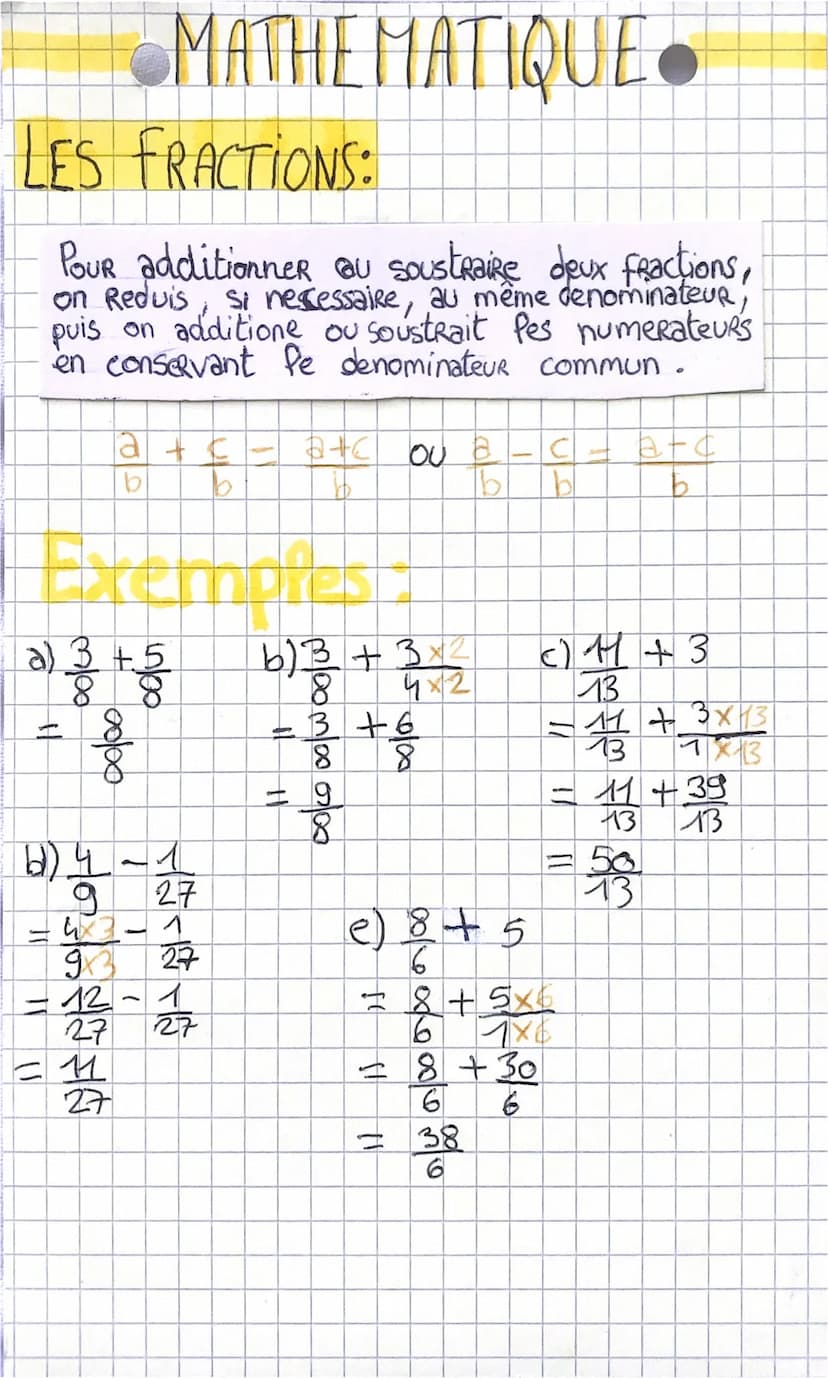 MATHEMATIQUE
LES FRACTIONS:
Pour additionner ou soustraire deux fractions,
on reduis, si necessaire, au même denominateur,
puis on additione ou soustrait les numerateurs
en conservant le denominateur commun.
a/b + c/b = a+c/b ou a/b - c/b = a-c/b
Exemples:
a) 3/8 + 5/8
= 8/8
b) 3/8 + 3×2/4×2
= 3/8 + 6/8
= 9/8
c) 11/13 + 3
= 11/13 + 3×13/1×13
= 11/13 + 39/13
= 50/13
d) 4/9 - 1/27
= 4×3/9×3 - 1/27
= 12/27 - 1/27
= 11/27
e) 8/6 + 5
= 8/6 + 5×6/1×6
= 8/6 + 30/6
= 38/6